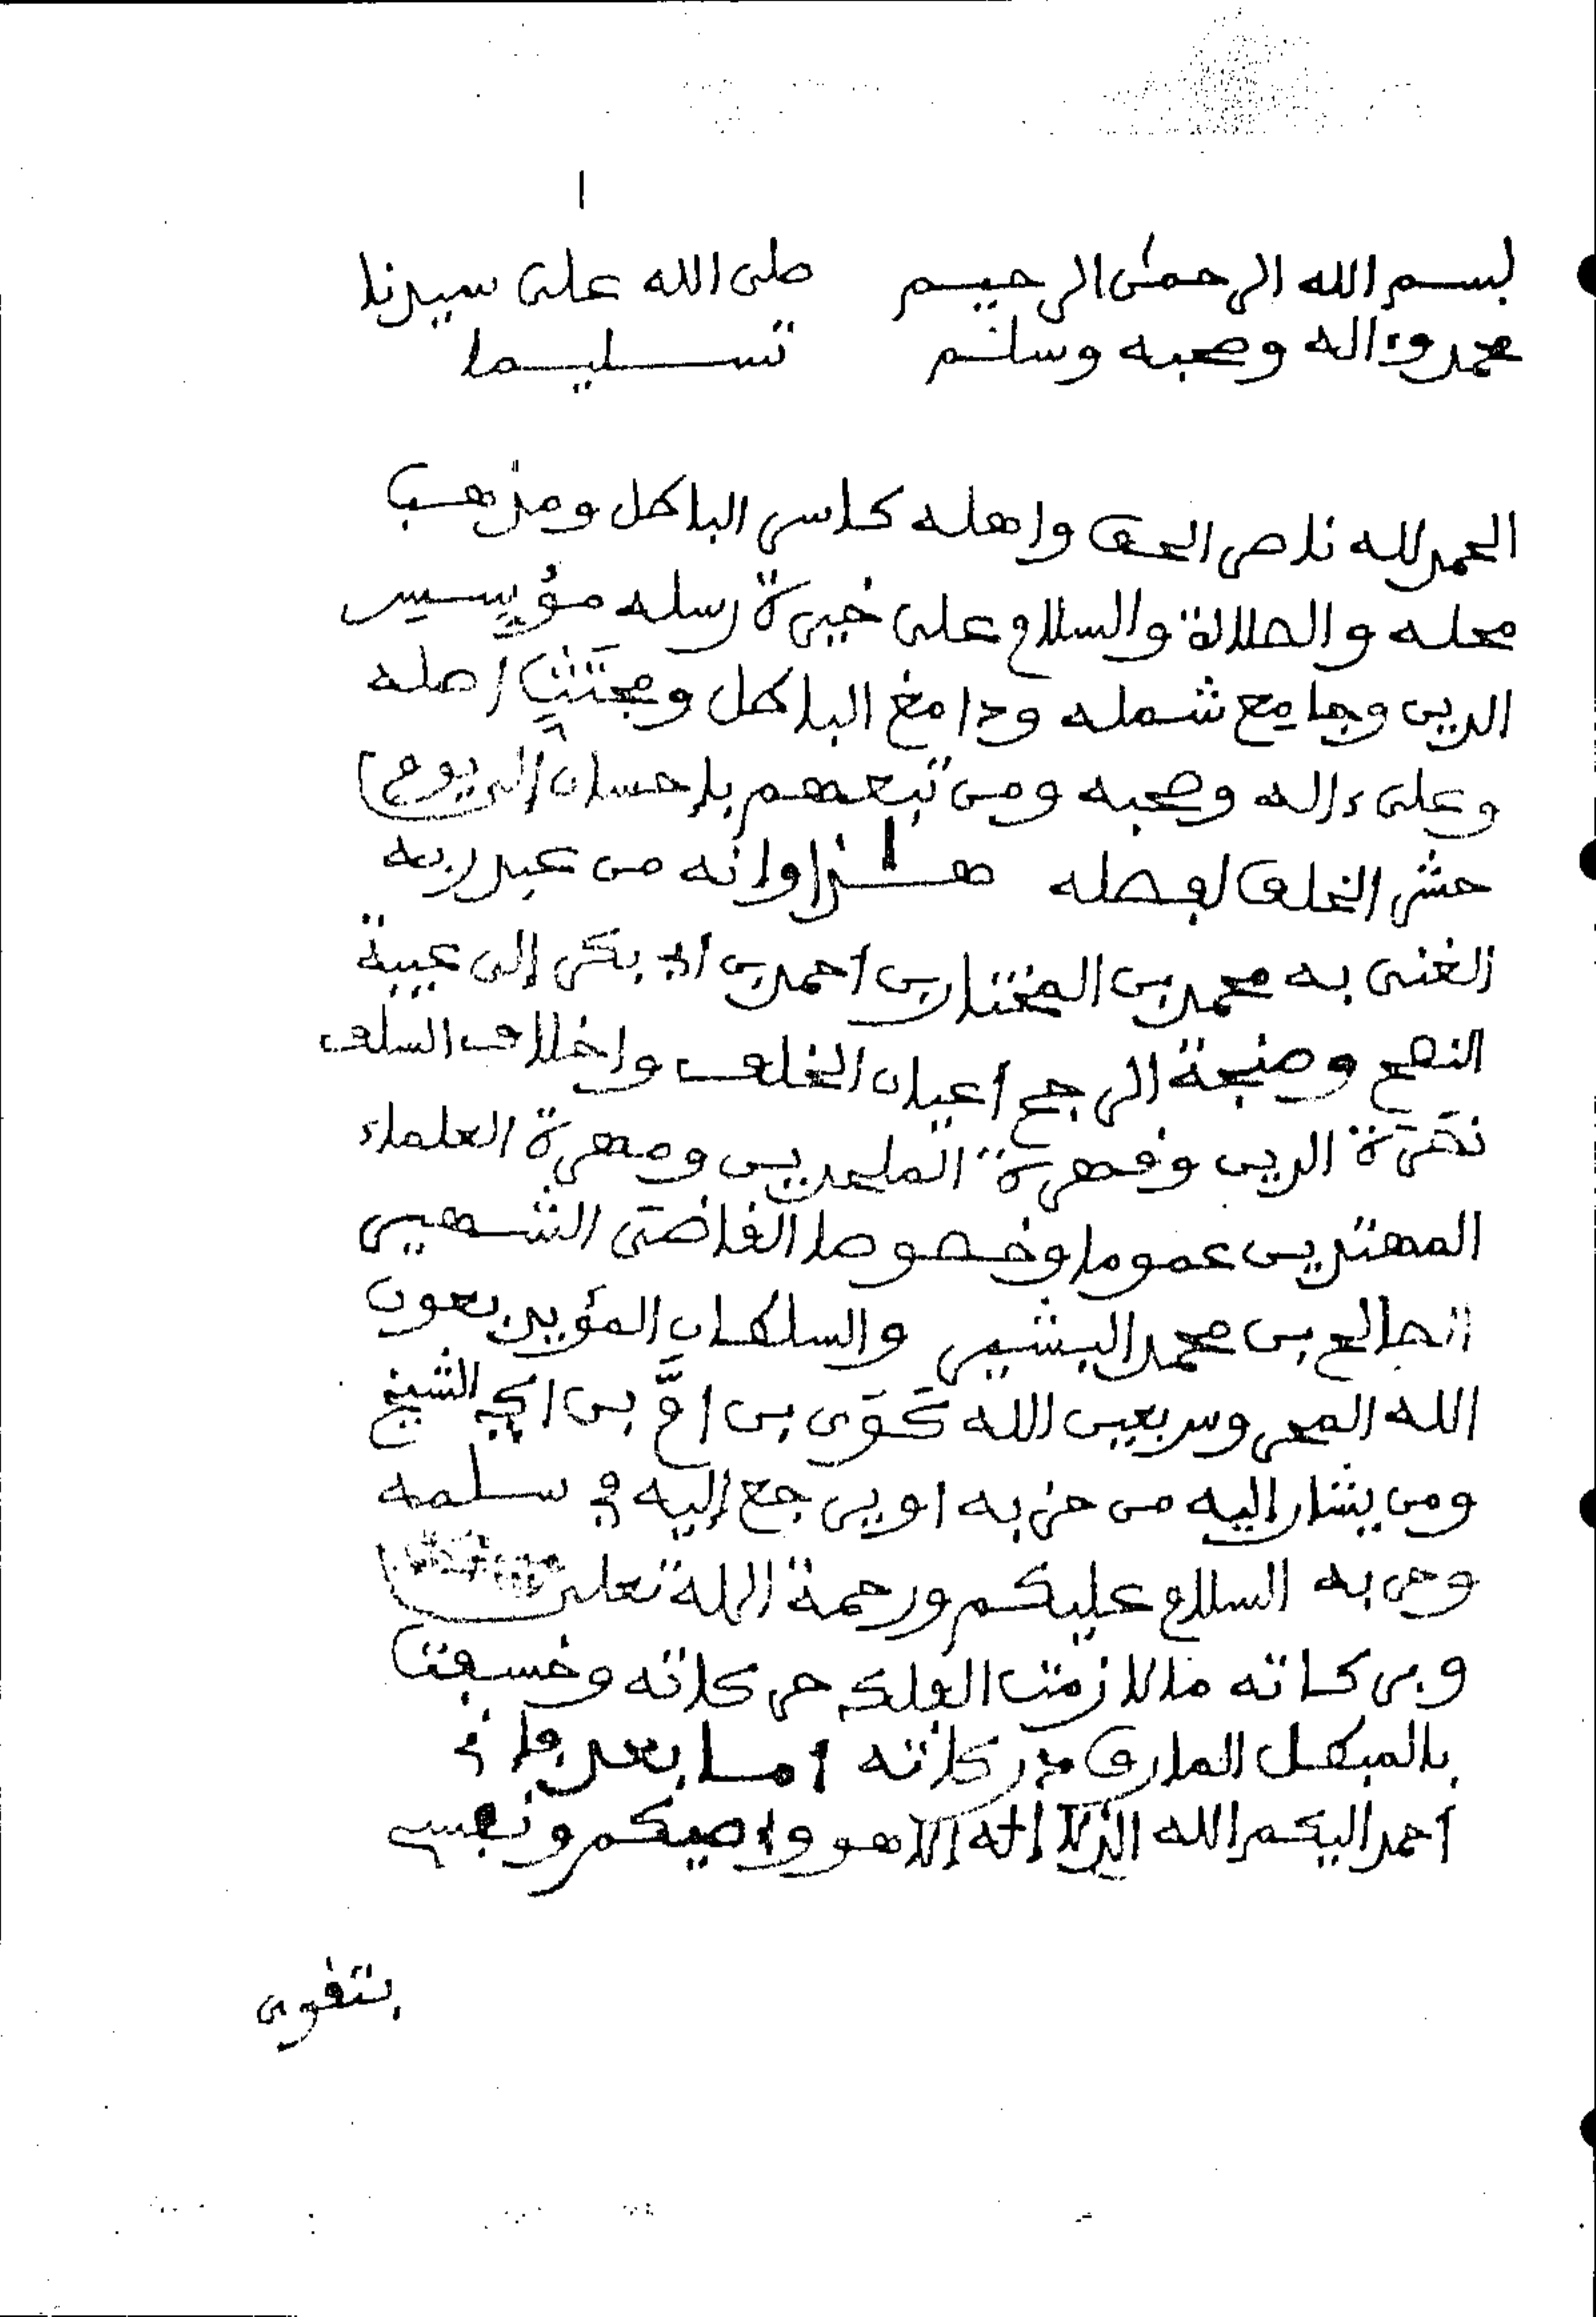 ١
بسم الله الرحمن الرحيم صلى الله على سيدنا
محمد وءاله وصحبه وسلم تسليما
الحمد لله ناصر الحق واهله كاسر الباطل ومذهب
محله والصلاة والسلام على خيرة رسله مؤسس
الدين وجامع شمله ودامغ الباطل ومجتث أصله
وعلى ءاله وصحبه ومن تبعهم بإحسان إلى يوم
حشر الخلق لفصله هذا وانه من عبد ربه
الغنى به محمد بن المختار بن احمد بن ابى بكر إلى عيبة
النصح وصنجة الرجح اعيان الخلف واخلاف السلف
نصرة الدين وقهرة الملحدين ومهرة العلماء
المهتدين عموما وخصوصا القاضى الشهير
الصالح بن محمد البشير والسلطان المؤيد بعون
الله المحروس بعين الله كوى بن اق بن اكچ الشيخ
ومن يشار اليه من حزبه او يرجع إليه في سلمه
وحربه السلام عليكم ورحمة الله تعلى
وبركاته ما لازمت الفلك حركاته وخسفت
بالمبطل المارق دركاته أما بعد فإنى
أحمد اليكم الله الذي لا إله إلا هو وأوصيكم ونفسي
بتقوى